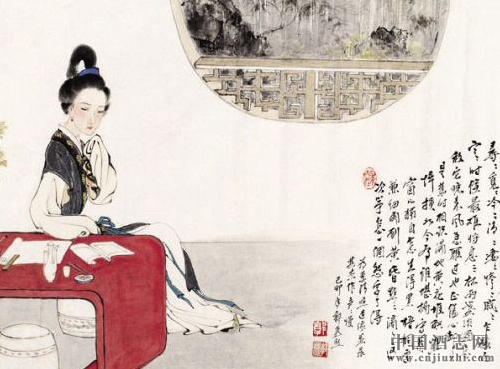 尋〻覓〻冷〻清〻凄〻慘〻戚〻乍暖還
寒時候最難將息三杯兩盞淡酒
敵他晚來風急雁過也正傷心却
是舊時相識滿地黃花堆積憔
悴損如今有誰堪摘守着
窗兒獨自怎生得黑梧桐更
兼細雨到黃昏點〻滴〻這
次第怎一個愁字了得
中国酒志网
www.cnjiuzhi.com